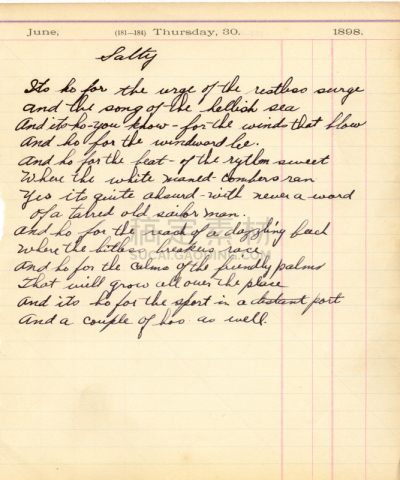 June, (181-184) Thursday, 30. 1898.
Salty
Its ho for the urge of the restless surge
and the song of the hellish sea
And its ho-you know-for the winds that blow
And ho! for the windward lee.
And ho for the beat-of the rythm sweet
Where the white maned combers ran
Yes its quite absurd-with never a word
Of a tarred old sailor man.
And ho for the reach of a dazzling beach
搞定素材
Where the bitless breakers race
SUCAI.GAODING.COM
And ho for the calms of the friendly palms
That will grow all over the place
And its ho for the sport in a distant port
And a couple of hos as well.